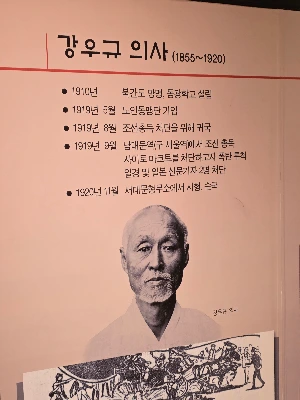 강우규 의사 (1855~1920)
● 1910년 북간도 망명, 동광학교 설립
● 1919년 5월 노인동맹단 가입
● 1919년 8월 조선총독 처단을 위해 귀국
● 1919년 9월 남대문역(구 서울역)에서 조선 총독
사이토 마코토를 처단하고자 폭탄 투척
일경 및 일본 신문기자 2명 처단
● 1920년 11월 서대문형무소에서 사형, 순국
강우규 의사